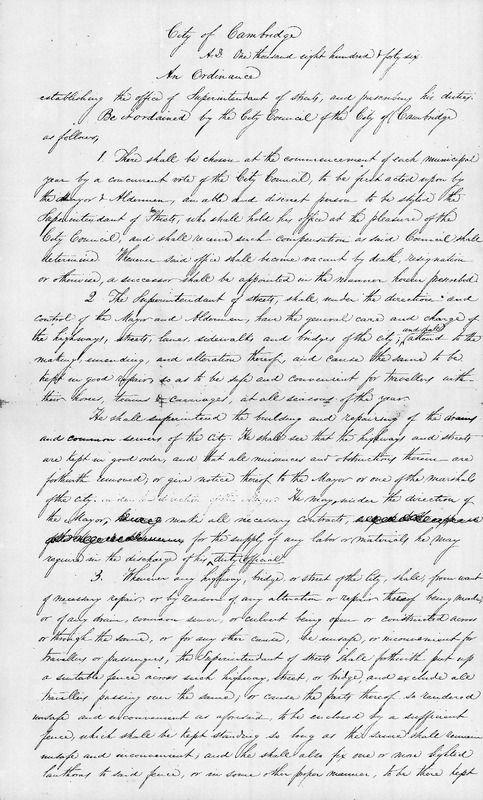 City of Cambridge
A.D. One thousand eight hundred & forty six
An Ordinance
establishing the office of Superintendant of streets, and prescribing his duties.
Be it ordained by the City Council of the City of Cambridge
as follows,
1. There shall be chosen at the commencement of each municipal
year by a concurrent vote of the City Council, to be first acted upon by
the Mayor & Aldermen, an able and discreet person to be styled the
Superintendant of Streets, who shall hold his office at the pleasure of the
City Council, and shall receive such compensation as said Council shall
determine. Whenever said office shall become vacant by death, resignation
or otherwise, a successor shall be appointed in the manner herein prescribed
2 The Superintendant of streets, shall under the direction and
control of the Mayor and Aldermen, have the general care and charge of
the highways, streets, lanes, sidewalks and bridges of the city; and shall attend to the
making, mending, and alteration thereof, and cause the same to be
kept in good repair, so as to be safe and convenient for travellers with
their horses, teams & carriages, at all seasons of the year.
He shall superintend the building and repairing of the drains
and common sewers of the City. He shall see that the highways and streets
are kept in good order, and that all nuisances and obstructions therein are
forthwith removed; or give notice thereof to the Mayor or one of the marshals
of the city. He may, under the direction of
the Mayor, make all necessary contracts,
for the supply of any labor or materials he may
require in the discharge of his duty official.
3. Whenever any highway, bridge, or street of the City, shall, from want
of necessary repair, or by reason of any alteration or repair thereof being made,
or of any drain, common sewer, or culvert being open or constructed across
or through the same, or for any other cause, be unsafe, or inconvenient for
travellers or passengers, the Superintendant of streets shall forthwith put up
a suitable fence across such highway, street, or bridge, and exclude all
travellers passing over the same; or cause the parts thereof so rendered
unsafe and inconvenient as aforesaid, to be enclosed by a sufficient
fence, which shall be kept standing so long as the same shall remain
unsafe and inconvenient, and he shall also fix one or more lighted
lanthorns to said fence, or in some other proper manner, to be there kept